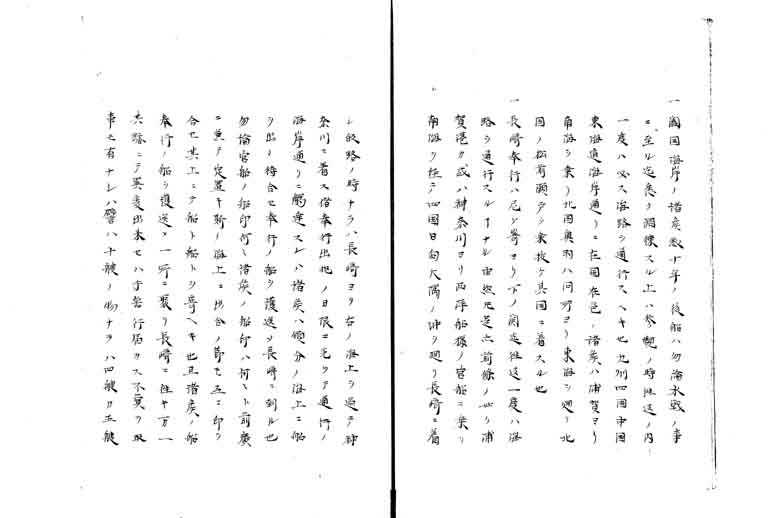 一闔国海岸ノ諸矦数十年ノ後船ハ勿論水戦ノ事
ニ至ル迄悉ク調練スル上ハ参覲ノ時往返ノ内
一度ハ必ス海路ヲ通行スヘキ也九州四国中国
東海道海岸通リニ在国在邑ノ諸矦ハ浦賀ヨリ
南海ヲ乗リ北国奥羽ハ同所ヨリ東海ヲ廻リ北
国ノ松前瀬戸ヲ乗抜ケ其国ニ着スル也
一長崎奉行ハ尼ヶ崎ヨリ下ノ関迄往返一度ハ海
路ヲ通行スルナル由然尼是亦前條ノ如ク浦
賀港カ或ハ神奈川ヨリ西洋船様ノ官船ニ乗リ
南海ヲ経テ四国日向大隅ノ沖ヲ廻リ長崎ニ着
シ皈路ノ時ナラハ長崎ヨリ右ノ海上ヲ過テ神
奈川ニ着ス偖奉行出地ノ日限ニ先タチ通行ノ
海岸通リニ觸達スレハ諸矦ハ領分ノ海上ニ船
ヲ出シ待合セ奉行ノ船ヲ護送シ長崎ニ到ル也
勿論官船ノ船印何々諸矦ノ船印ハ何々ト前廣
ニ兼テ定置キ銘々海上ニ出合ノ節ハ互ニ印ヲ
合セ其上ニテ船ト船トヲ寄ヘキ也且諸矦ノ船
奉行ノ船ヲ護送シ一所ニ聚リ長崎ニ往キ万一
共縣ニテ異変出来セハ守禦行届カス不冥ヲ取
事モ有ナレハ譬ハ十艘ノ物ナラハ四艘カ五艘